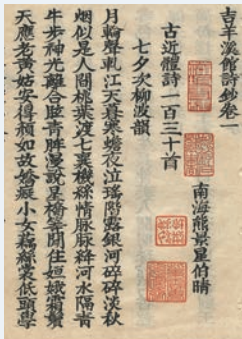 吉羊溪館詩鈔卷一
南海熊景星伯晴
古近體詩一百三十首
七夕次柳波韻
月輪聲軋江天暮寒蟾夜泣瑤階露銀河碎碎淡秋
烟似是人間桃葉渡七襄機絲情脉脉絳河水隔青
牛步神光離合眩青眸漫說星橋等閒住姮娥霜鬢
天應老黃姑安得頻如故嬌癡小女藕絲裳低頭學